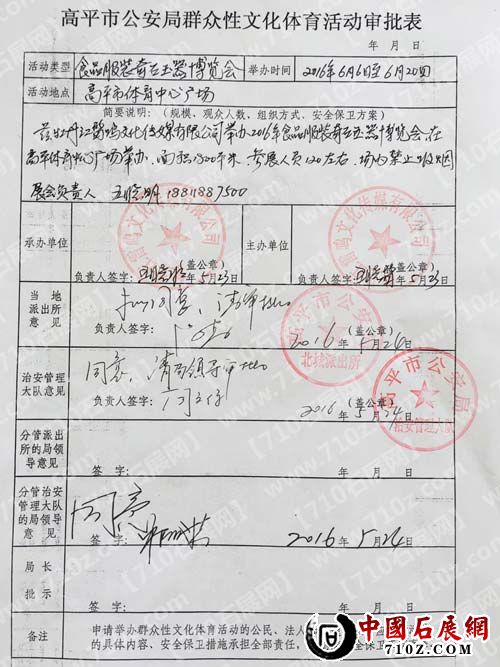 高平市公安局群众性文化体育活动审批表
年 月 日
活动类型 食品服装奇石玉器博览会 举办时间 2016年6月6日至6月20日
活动地点 高平市体育中心广场
简要说明：（规模、观众人数、组织方式、安全保卫方案）
文化传媒有限公司举办2016年食品服装奇石玉器博览会，在
高平体育中心广场举办，面积1500平米，参展人员120左右，场内禁止吸烟
展会负责人 18811887500
承办单位 （盖公章） 主办单位 （盖公章）
负责人签字： 年5月23日 负责人签字： 年5月23日
文化传媒有限公司
文化传媒有限公司
当地派出所意见
同意，
负责人签字： （盖公章）
2016年5月24日
高平市公安局
北城派出所
治安管理大队意见
同意，请局领导审批
负责人签字： （盖公章）
2016年5月24日
高平市公安局
治安管理大队
分管派出所的局领导意见
签字： 年 月 日
分管治安管理大队的局领导意见
同意
签字： 2016年5月24日
局长批示
签字： 年 月 日
备注 申请举办群众性文化体育活动的公民、法人
的具体内容、安全保卫措施承担全部责任，
【7102石展网】
中國石展网
7102.COM